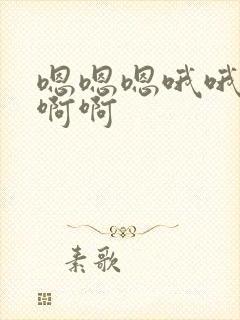 嗯嗯嗯哦哦
啊啊
素歌